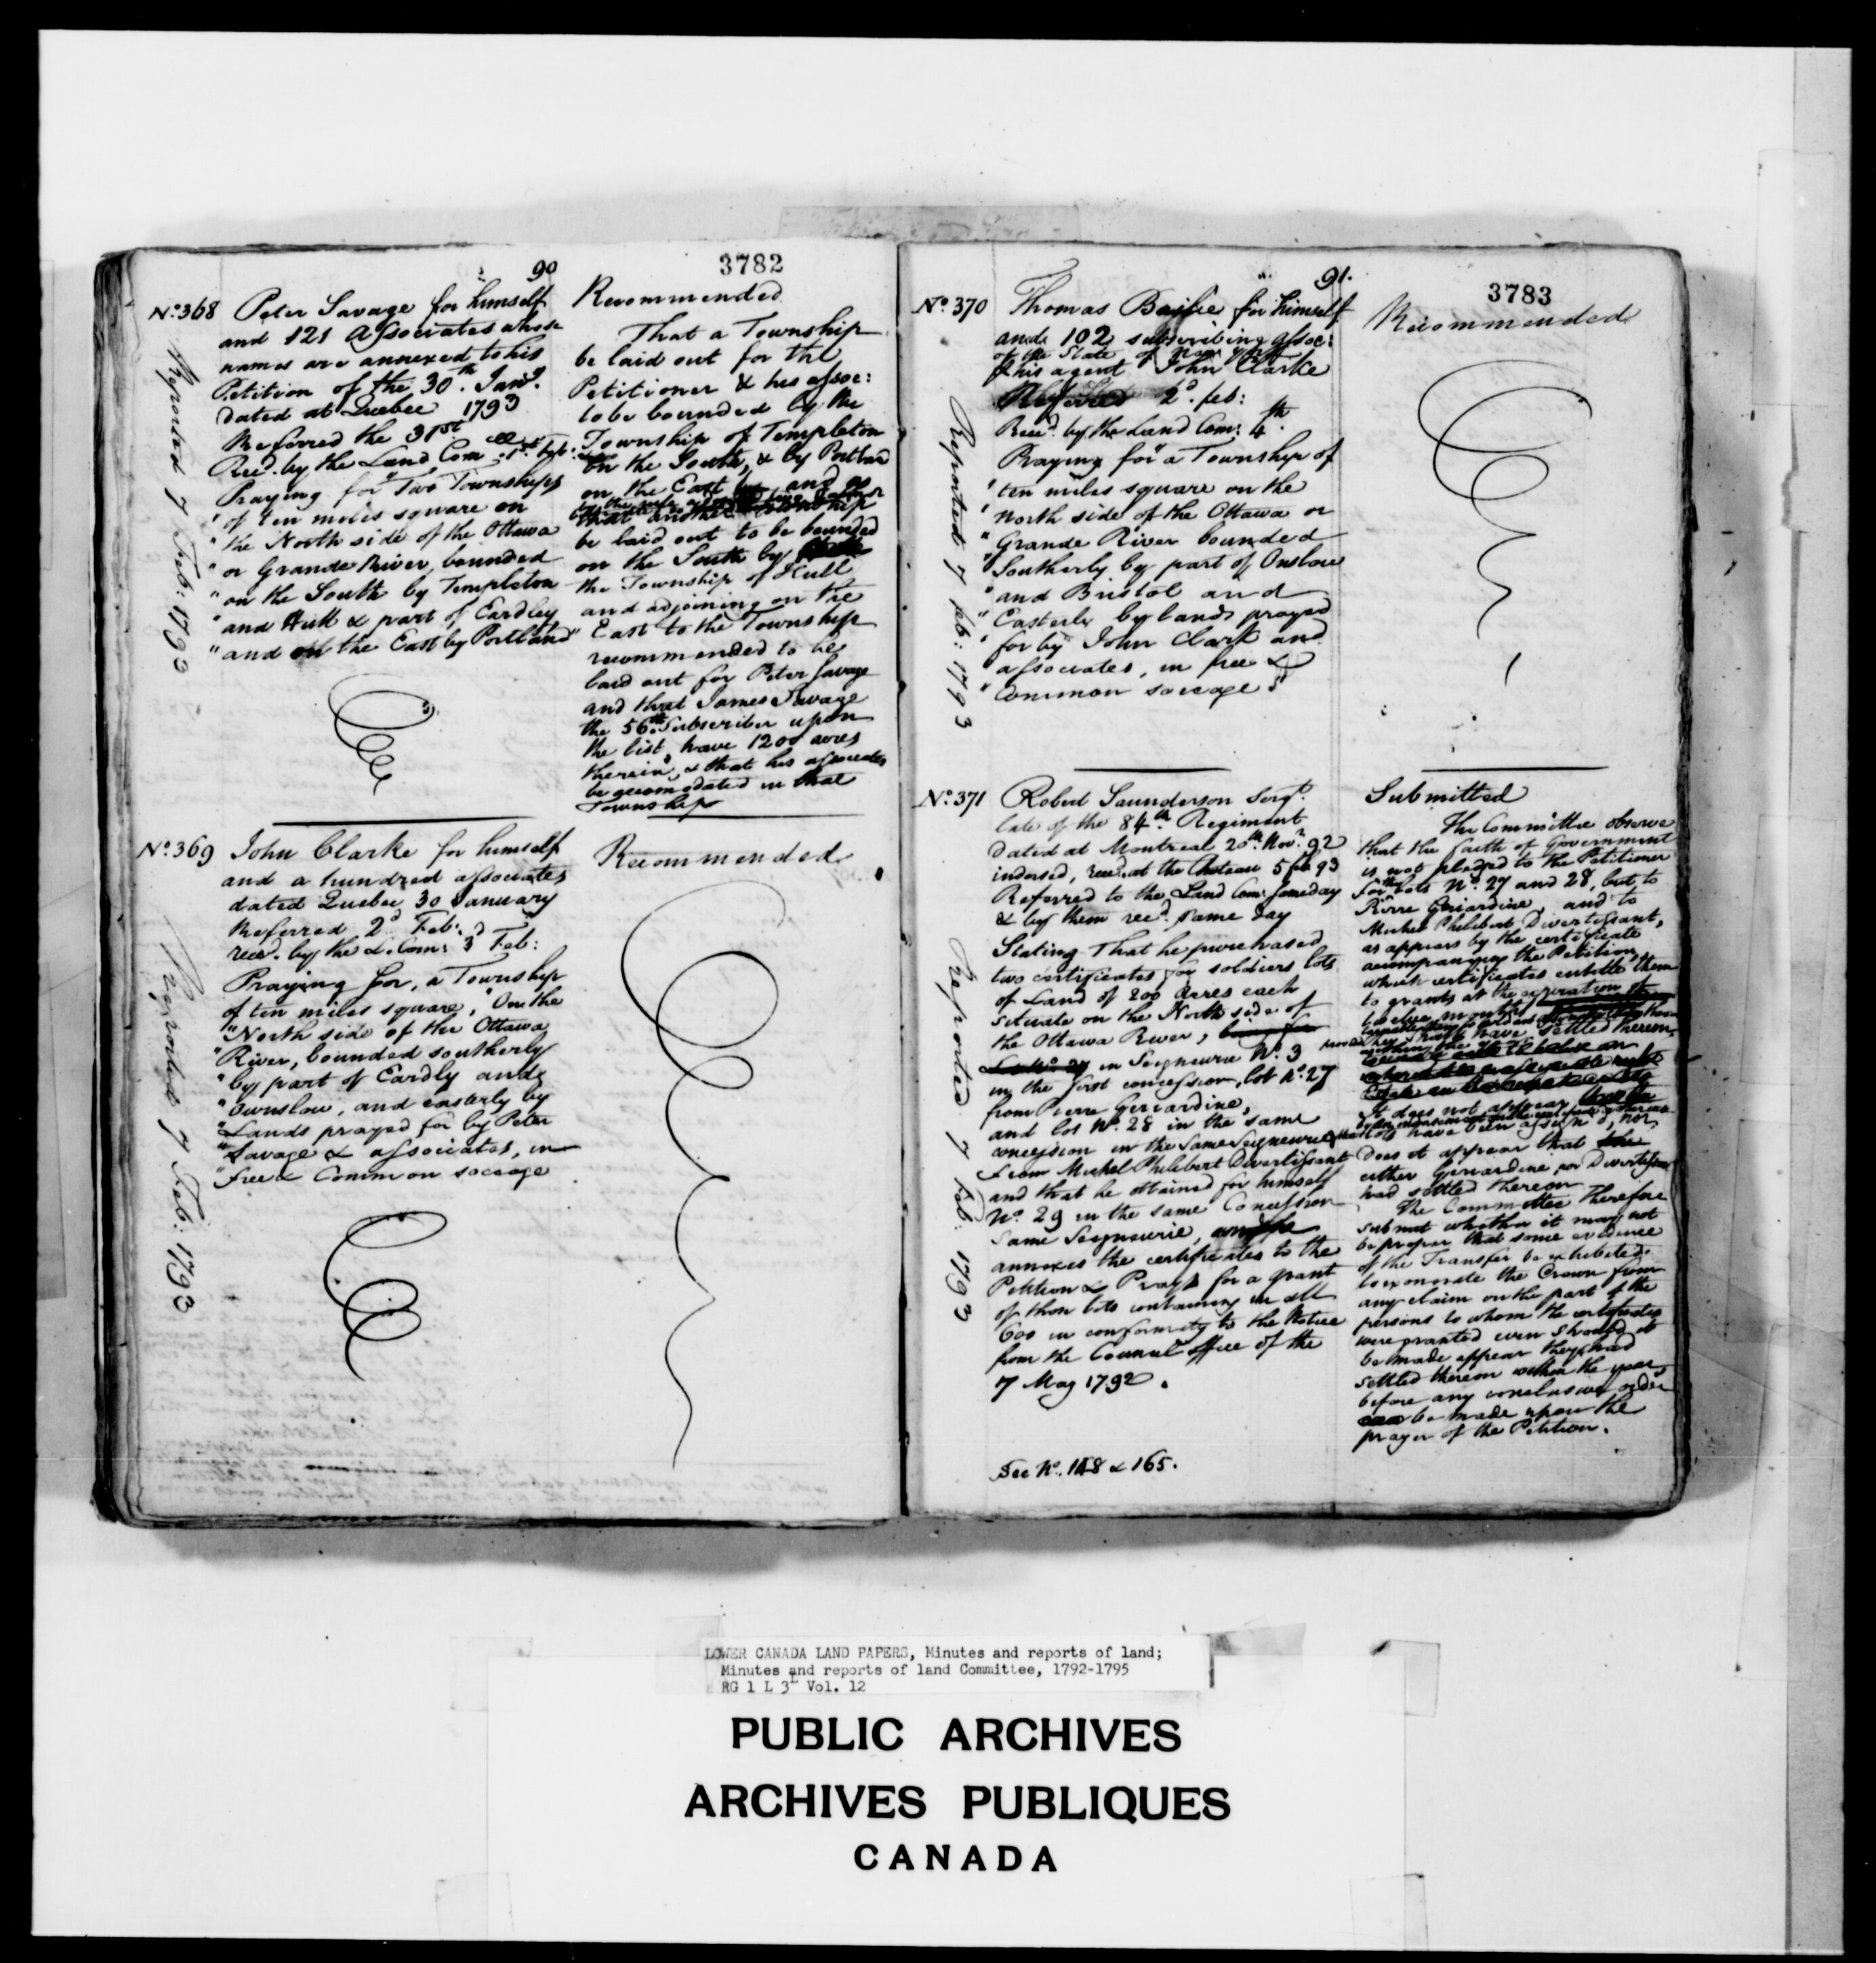 90
3782
Nº. 368 Peter Savage for himself
and 121 Associates whose
names are annexed to his
Petition of the 30.th Jany.
Dated at Quebec 1793
Referred the 31st
Reed. by the Land Com 1st. feb:
Praying for "Two Townships
" of ten miles square on
" the North side of the Ottawa
" or Grande River, bounded
" on the South by Templeton
" and Hull & part of Eardley
" and on the East by Portland"
Reported 7 Feb: 1793
Recommended
That a Township
be laid out for the
Petitioner & his assoc:
to be bounded by the
Township of Templeton
on the South, & by Portland
on the East and
that another Township
be laid out to be bounded
on the South by
the Township of Hull
and adjoining on the
East to the Township
recommended to be
laid out for Peter Savage
and that James Savage
the 56th. Subscriber upon
the list, have 1200 acres
therein, & that his associates
be accomodated in that
Township
Nº. 369 John Clarke for himself
and a hundred associates
dated Quebec 30 January
Referred 2d Feb:
reed. by the L. Com: 3d Feb:
Praying for, a Township
of ten miles square, "On the
"North side of the Ottawa
"River, bounded southerly
"by part of Eardly and
"Ownslow, and easterly by
"Lands prayed for by Peter
"Savage & associates, in
"free & Common soccage
Reported 7 Feb: 1793
Recommended
91.
3783
Nº. 370 Thomas Bailie for himself
and 102 subscribing assoc:
of the State of New York
& his agent John Clarke
Referred 2d. feb:
Reed. by the Land Com: 4th.
Praying for "a Township of
" ten miles square on the
" North side of the Ottawa or
" Grande River bounded
" Southerly by part of Onslow
" and Bristol and
" Easterly by lands prayed
" for by John Clark and
" associates, in free &
" Common soccage"
Reported 7 feb: 1793
Recommended
Nº. 371 Robert Saunderson Sergt.
late of the 84th. Regiment
Dated at Montreal 20th. Novr. 92
indorsed, reed. at the Chateau 5 feb 93
Referred to the Land Com: same day
& by them reed. same day
Stating That he purchased
two certificates for soldiers lots
of Land of 200 Acres each
situate on the North side of
the Ottawa River,
Lot Nº. 27 in Seigneurie Nº. 3
in the first concession, lot Nº. 27
from Pierre Geriardine,
and lot Nº. 28 in the same
concession in the same Seigneurie
from Michel Philibert Divertissant
and that he obtained for himself
Nº. 29 in the same Concession
Same Seigneurie,
annexes the certificates to the
Petition & Prays for a grant
of those lots containing in all
600 in conformity to the Notice
from the Council office of the
7 May 1792.
See Nº. 148 & 165.
Reported 7 feb: 1793
Submitted
The Committee observe
that the faith of Government
is not pledged to the Petitioner
for the lots Nº. 27 and 28, but to
Pierre Geriardine, and to
Michel Philibert Divertissant,
as appears by the certificate
accompanying the Petition,
which certificates entitle them
to grants at the expiration of
twelve months
have settled thereon
It does not appear
lots have been assigned, nor
Does it appear that
either Geriardine, or Divertissant
had settled thereon
The Committee therefore
submit whether it may not
be proper that some evidence
of the Transfer be exhibited
to exonorate the Crown from
any claim on the part of the
persons to whom the certificates
were granted even should it
be made appear they had
settled thereon within the year,
before any conclusive order
be made upon the
prayer of the Petition.
LOWER CANADA LAND PAPERS, Minutes and reports of land;
Minutes and reports of land Committee, 1792-1795
RG 1 L 3L Vol. 12
PUBLIC ARCHIVES
ARCHIVES PUBLIQUES
CANADA